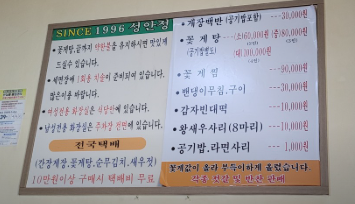 SINCE 1996 성안정
• 꽃게탕.끝까지 약한불을 유지하시면 맛있게
드실수 있습니다.
많은이용 바랍니다.
• 여성전용 화장실은 식당안에 있습니다.
• 남성전용 화장실은 주차장 전면에 있습니다.
전국택배
(간장게장,꽃게탕,순무김치,새우젓)
10만원이상 구매시 택배비 무료
• 게장백반 (공기밥포함) ---30,000원
• 꽃게탕 (소)60,000원 (중)80,000원
(공기밥별도) (대)100,000원
• 꽃게찜 ---90,000원
• 밴댕이무침.구이 ---30,000원
• 감자빈대떡 ---10,000원
• 왕새우사리(8마리) ---10,000원
• 공기밥,라면사리 ---1,000원
꽃게값이 올라 부득이하게 올렸습니다.